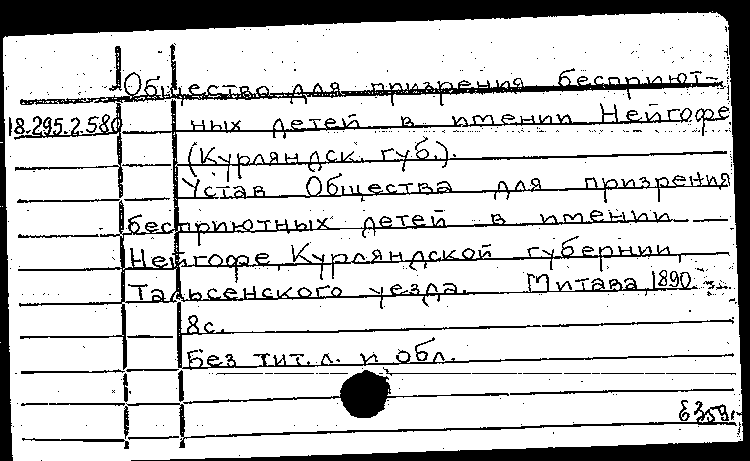 Общество для призрения бесприют-
18.295.2.580 ных детей в имении Нейгофе
(Курляндск. губ.).
Устав Общества для призрения
бесприютных детей в имении
Нейгофе, Курляндской губернии,
Тальсенского уезда. Митава, 1890.
8с.
Без тит. л. и обл.